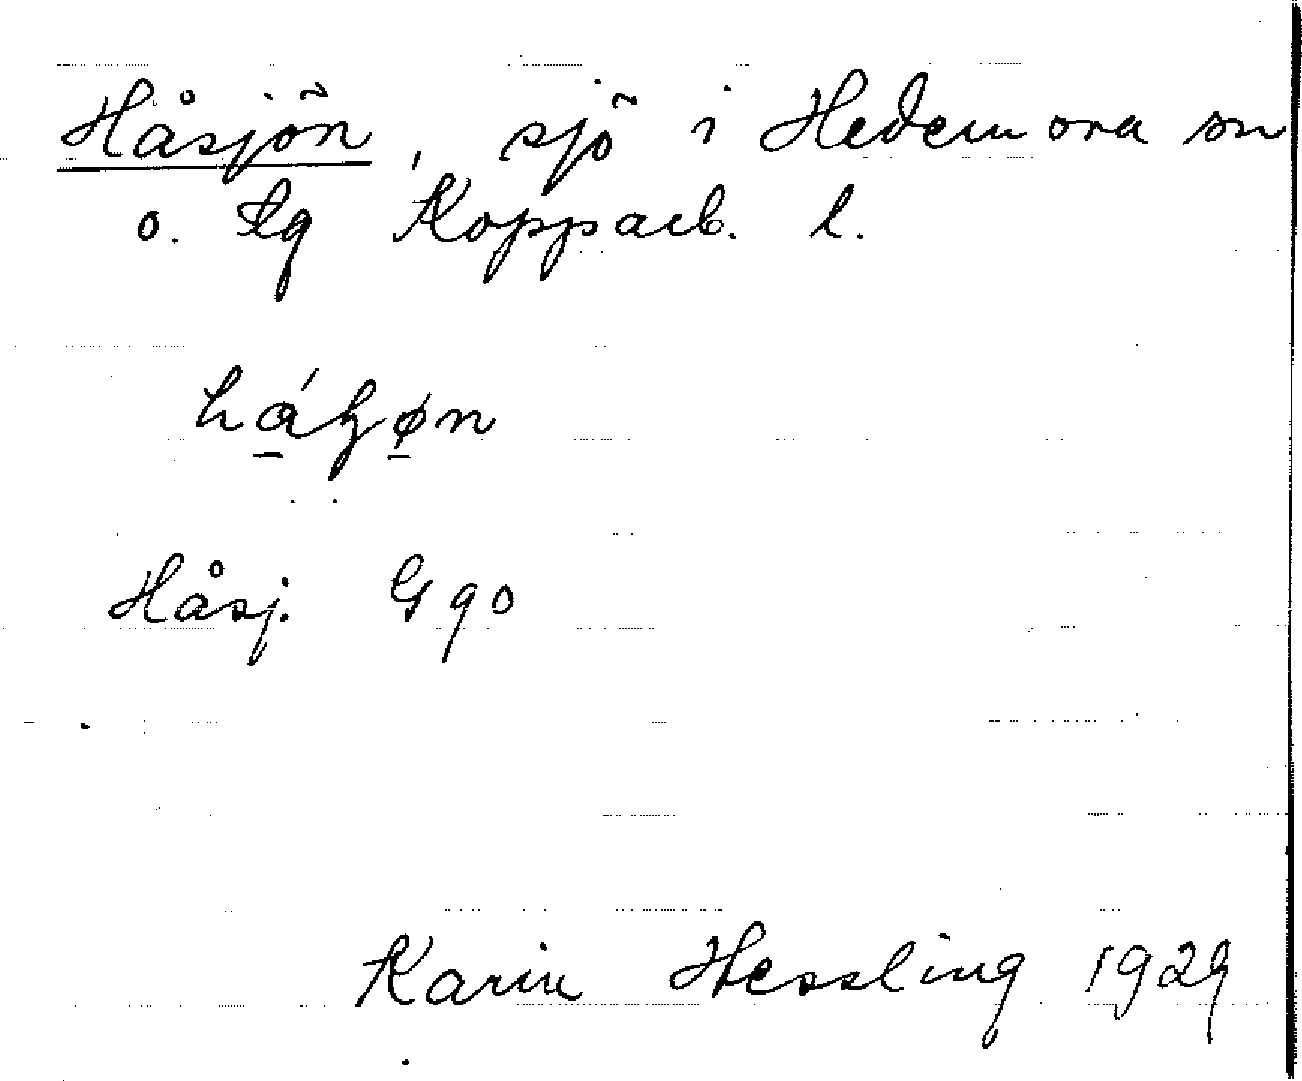 Håsjön, sjö i Hedemora sn
o. tg Kopparb. l.
Håsj. G90
Karin Hessling 1929